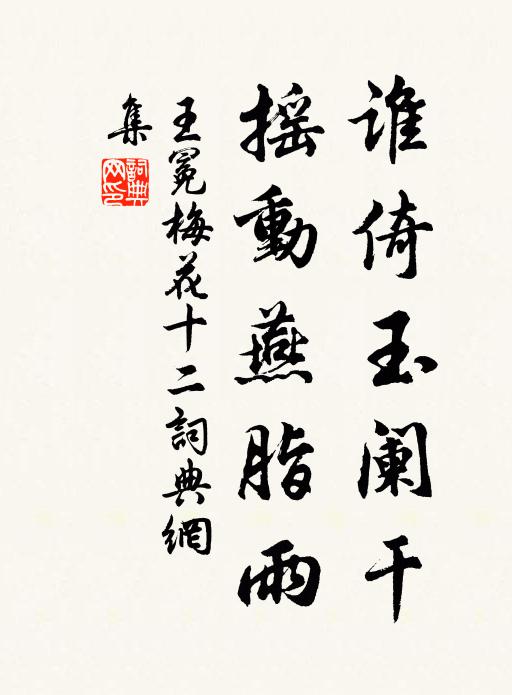 谁倚玉阑干
摇動燕脂雨
王冕梅花十二詞典網
集
詞典网印